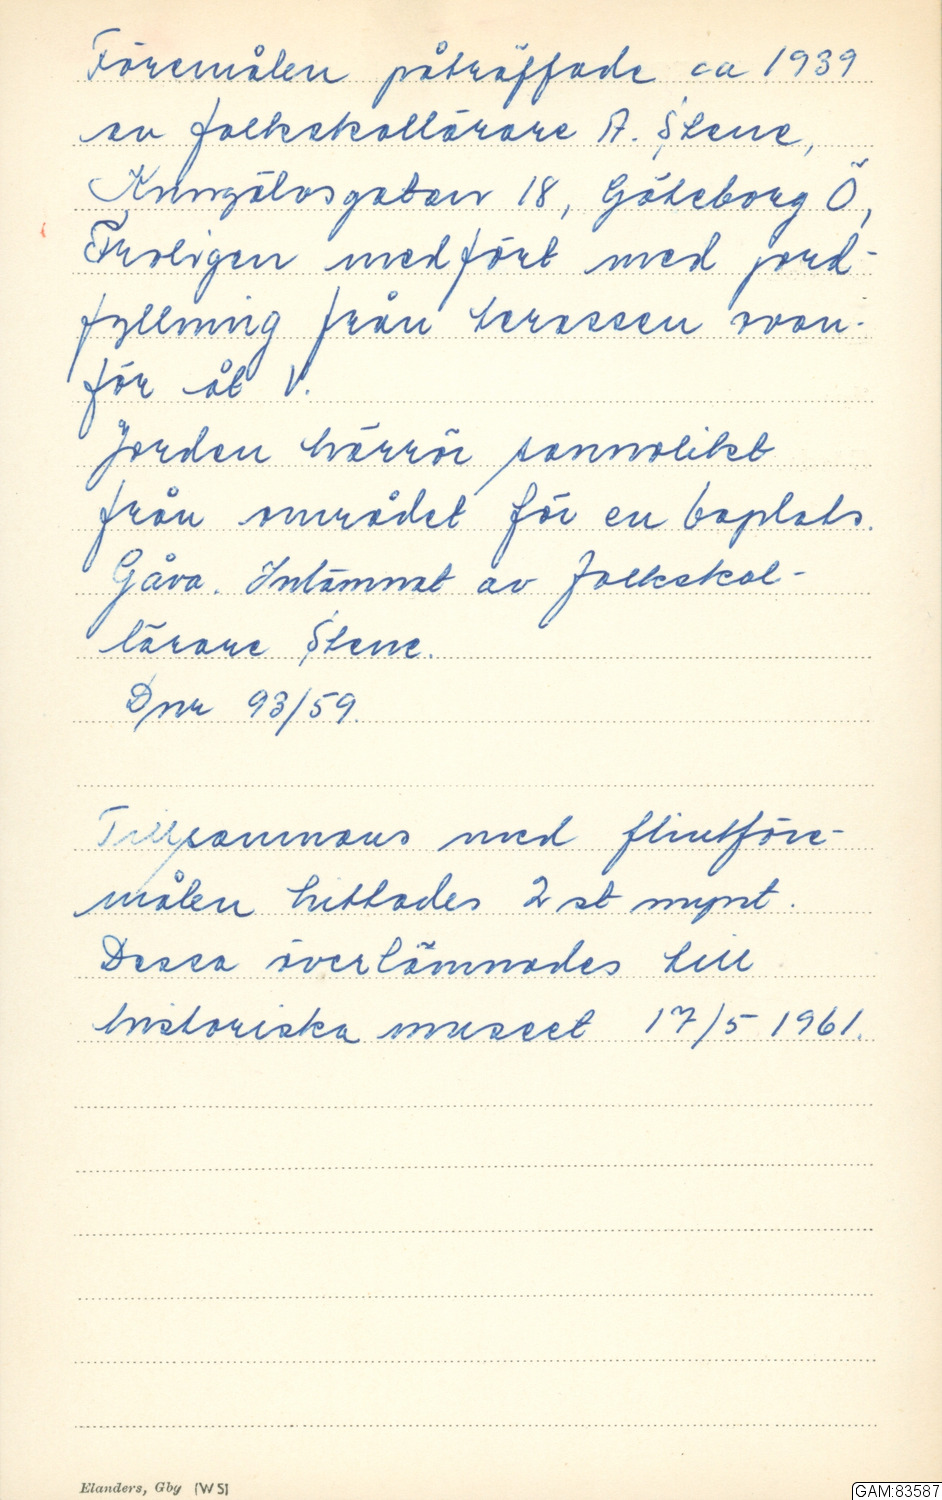 Föremålen påträffade ca 1939
av folkskollärare A. Stene,
Kungälvsgatan 18, Göteborg Ö,
Troligen medfört med jord-
fyllning från terassen ovan-
för åt V.
Jorden härrör sannolikt
från området för en boplats.
Gåva. Inlämnat av folkskol-
lärare Stene.
Dnr 93/59.
Tillsammans med flintföre-
målen hittades 2 st mynt.
Dessa överlämnades till
historiska museet 17/5 1961.
Elanders, Gby (WS)
GAM:83587